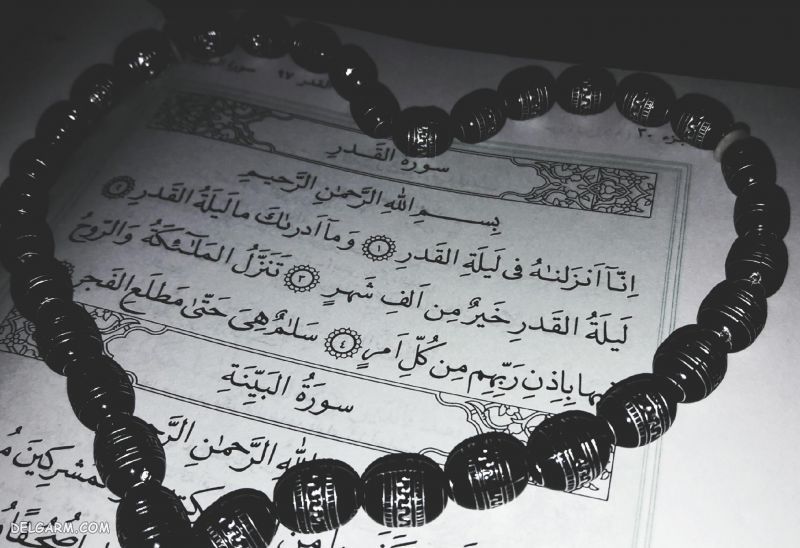 القدر ٩٧
جزء ٣٠
سورة القَدرِ
بِسمِ اللهِ الرَّحمٰنِ الرَّحيمِ
اِنّآ اَنزَلنٰهُ فى لَيلَةِ القَدرِ ١ وَمآ اَدرىٰكَ ما لَيلَةُ القَدرِ ٢
لَيلَةُ القَدرِ خَيرٌ مِن اَلفِ شَهرٍ ٣ تَنَزَّلُ المَلٰٓئِكَةُ وَالرّوحُ
فيها بِاِذنِ رَبِّهِم مِن كُلِّ اَمرٍ ٤ سَلٰمٌ هِىَ حَتّىٰ مَطلَعِ الفَجرِ
سورَةُ البَيِّنَةِ
اللهِ الرَّحمٰنِ الرَّح
DELGARM.COM